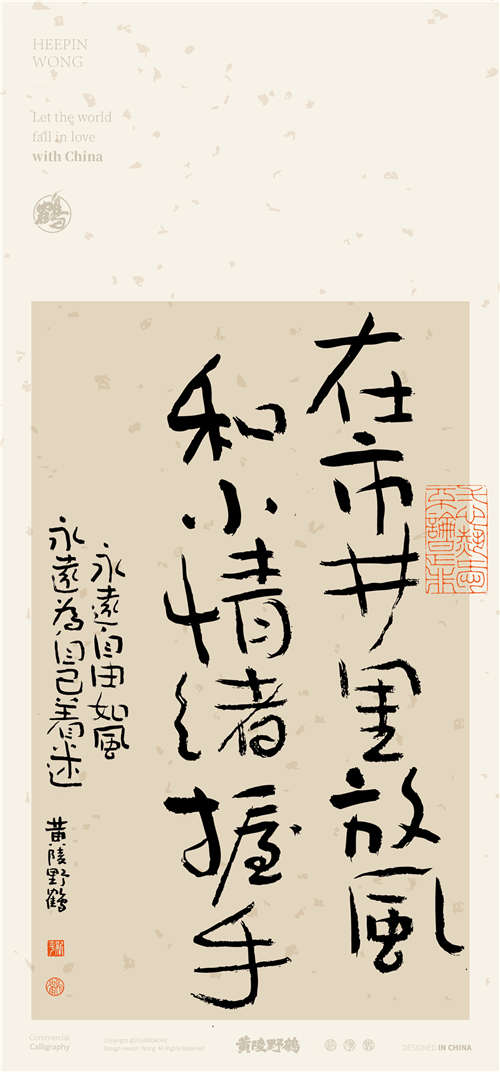 HEEPIN
WONG
Let the world
fall in love
with China
鶴
在市井里放風
和小情绪握手
永遠自由如風
永遠為自己着迷
黄陵野鶴
Commercial
Calligraphy
黄陵野鶴
DESIGNED IN CHINA